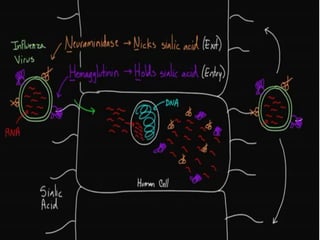 Influenza
Virus
Neuraminidase → Nicks sialic acid (Exit)
Hemagglutinin → Holds sialic acid (Entry)
DNA
RNA
Human Cell
Sialic
Acid